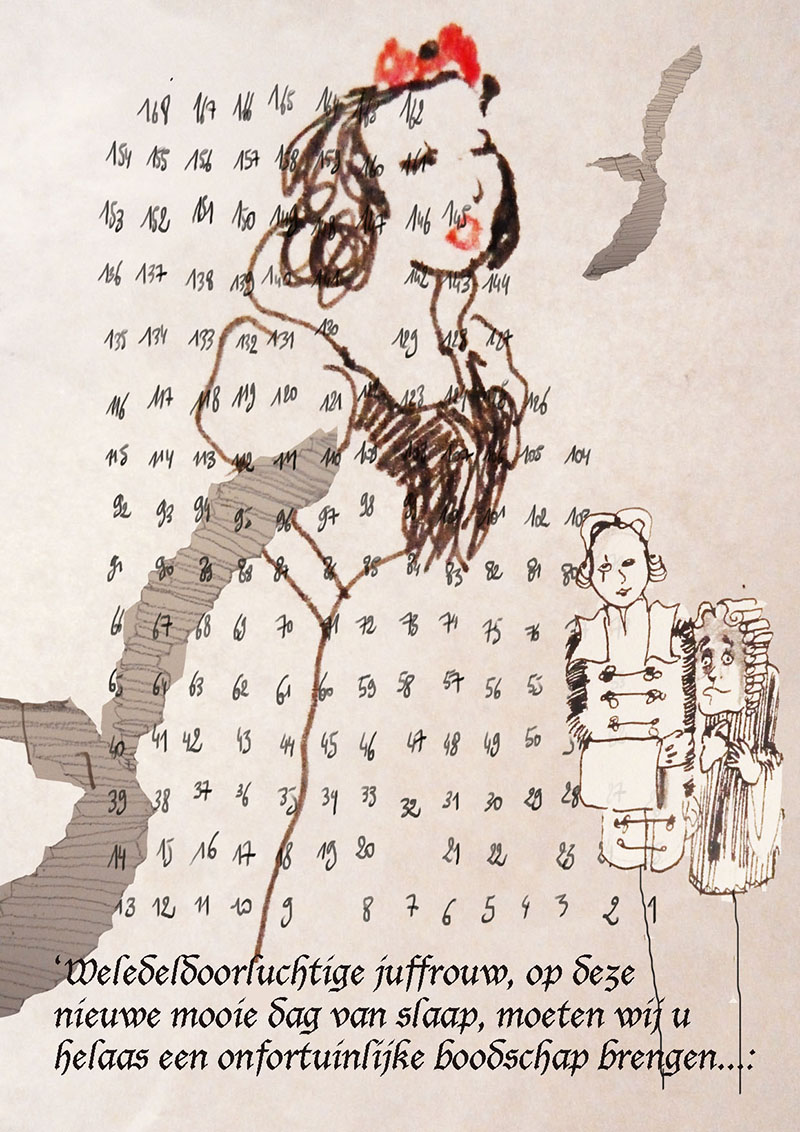 168 167 166 165 164 163 162
154 155 156 157 158 159 160 161
153 152 151 150 149 148 147 146 145
136 137 138 139 140 141 142 143 144
135 134 133 132 131 130 129 128 127
116 117 118 119 120 121 122 123 124 125 126
115 114 113 112 111 110 109 108 107 106 105 104
92 93 94 95 96 97 98 99 100 101 102 103
91 90 89 88 87 86 85 84 83 82 81 80
66 67 68 69 70 71 72 73 74 75 76
65 64 63 62 61 60 59 58 57 56 55
40 41 42 43 44 45 46 47 48 49 50
39 38 37 36 35 34 33 32 31 30 29 28 27
14 15 16 17 18 19 20 21 22 23
13 12 11 10 9 8 7 6 5 4 3 2 1
‘Weledeldoorluchtige juffrouw, op deze
nieuwe mooie dag van slaap, moeten wij u
helaas een onfortuinlijke boodschap brengen...: